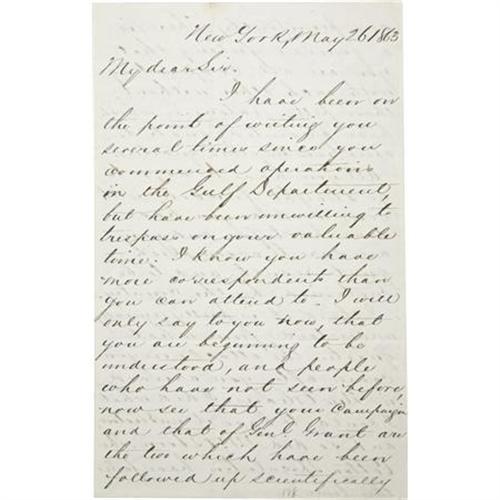 New York, May 26 1863
My dear Sir.
I have been on
the point of writing you
several times since you
commenced operations
in the Gulf Department,
but have been unwilling to
trespass on your valuable
time. I know you have
more correspondents than
you can attend to. I will
only say to you now, that
you are beginning to be
understood, and people
who have not seen before,
now see that your Campaign
and that of Genl. Grant are
the two which have been
followed up scientifically